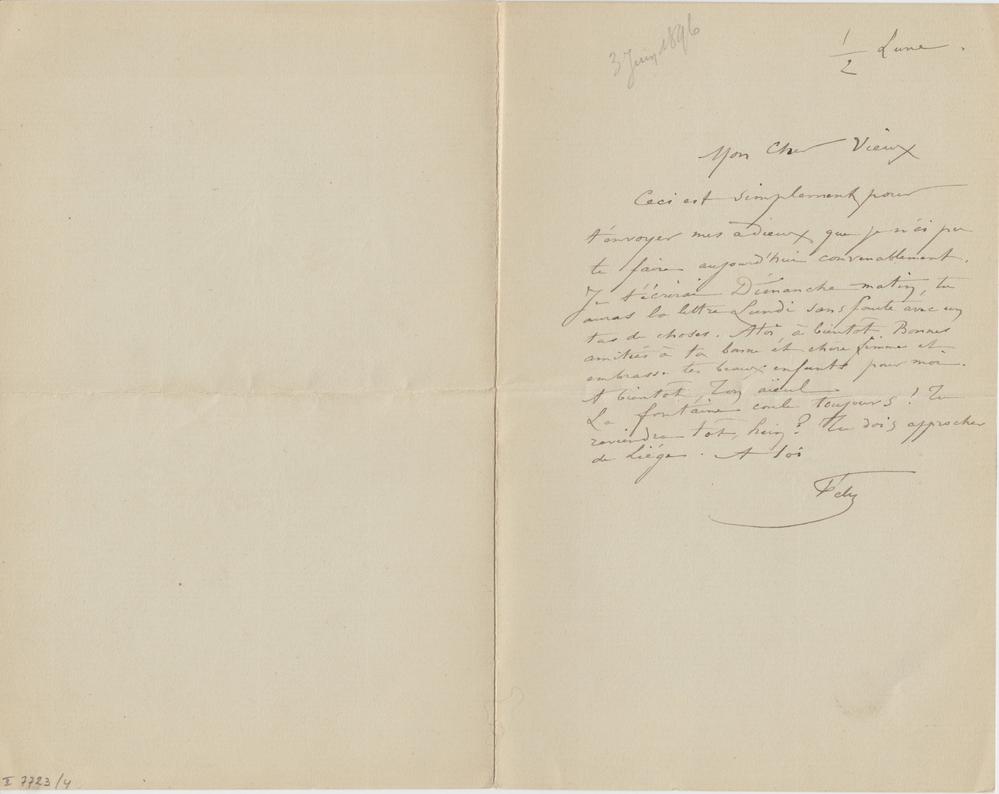 3 Juin 1896
1/2 Lune.
Mon Cher Vieux
Ceci est simplement pour
t'envoyer mes adieux que je n'ai pu
te faire aujourd'hui convenablement.
Je t'écrirai Dimanche matin, tu
auras la lettre Lundi sans faute avec un
tas de choses. A toi, à bientôt. Bonnes
amitiés à ta bonne et chère femme et
embrasse tes beaux enfants pour moi.
A bientôt, Ton aïeul
La fontaine coule toujours ! Tu
reviendras tôt, hein ? Tu dois approcher
de Liége. A toi
Fély
II 7723/4